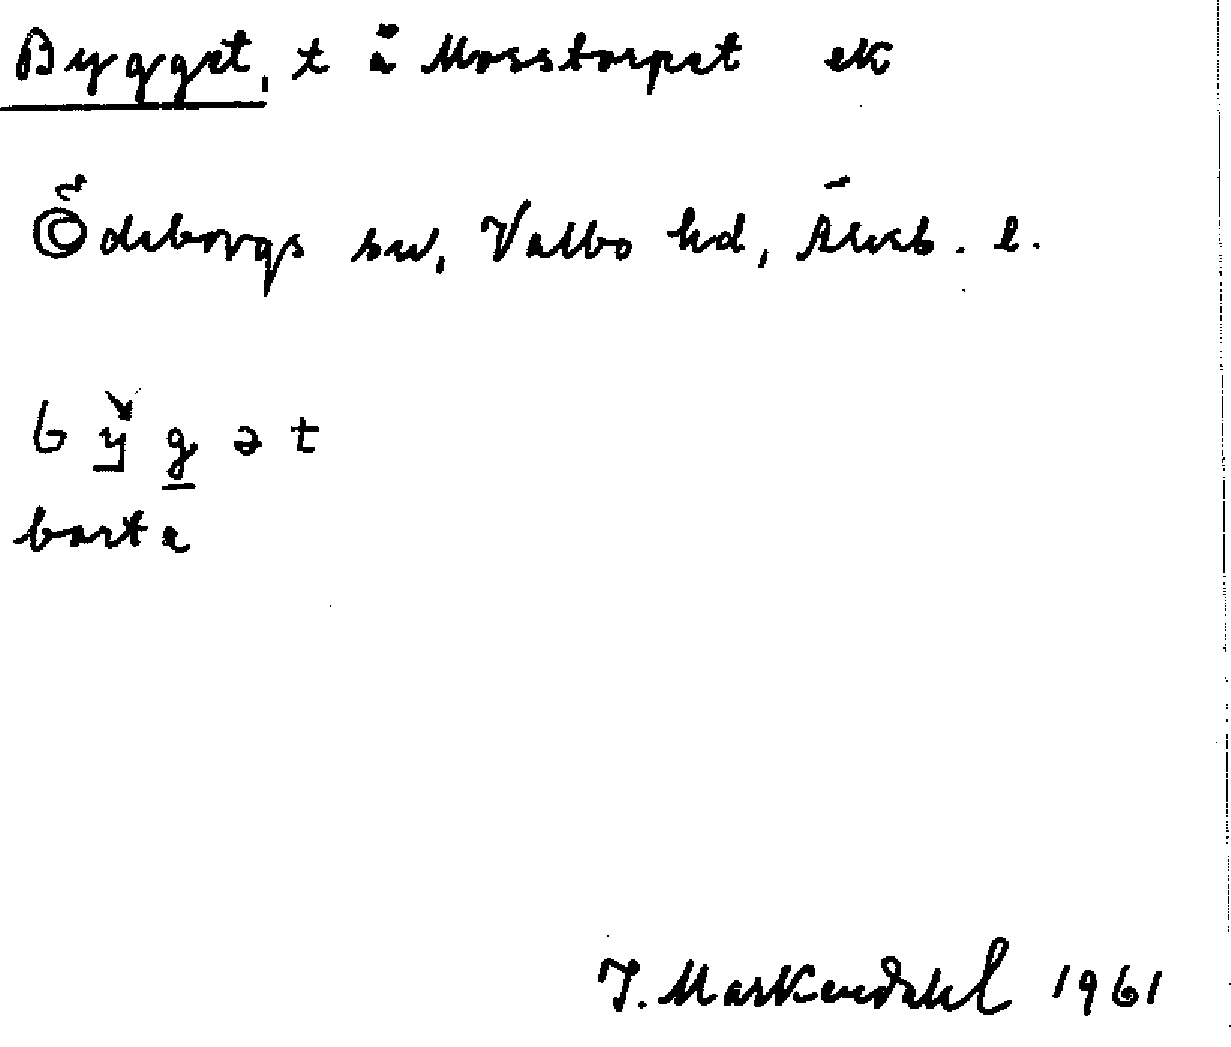 Bygget, t å Mosstorpet ek
Ödeborgs sn, Valbo hd, Älvsb. l.
bygət
borta
J. Markendahl 1961